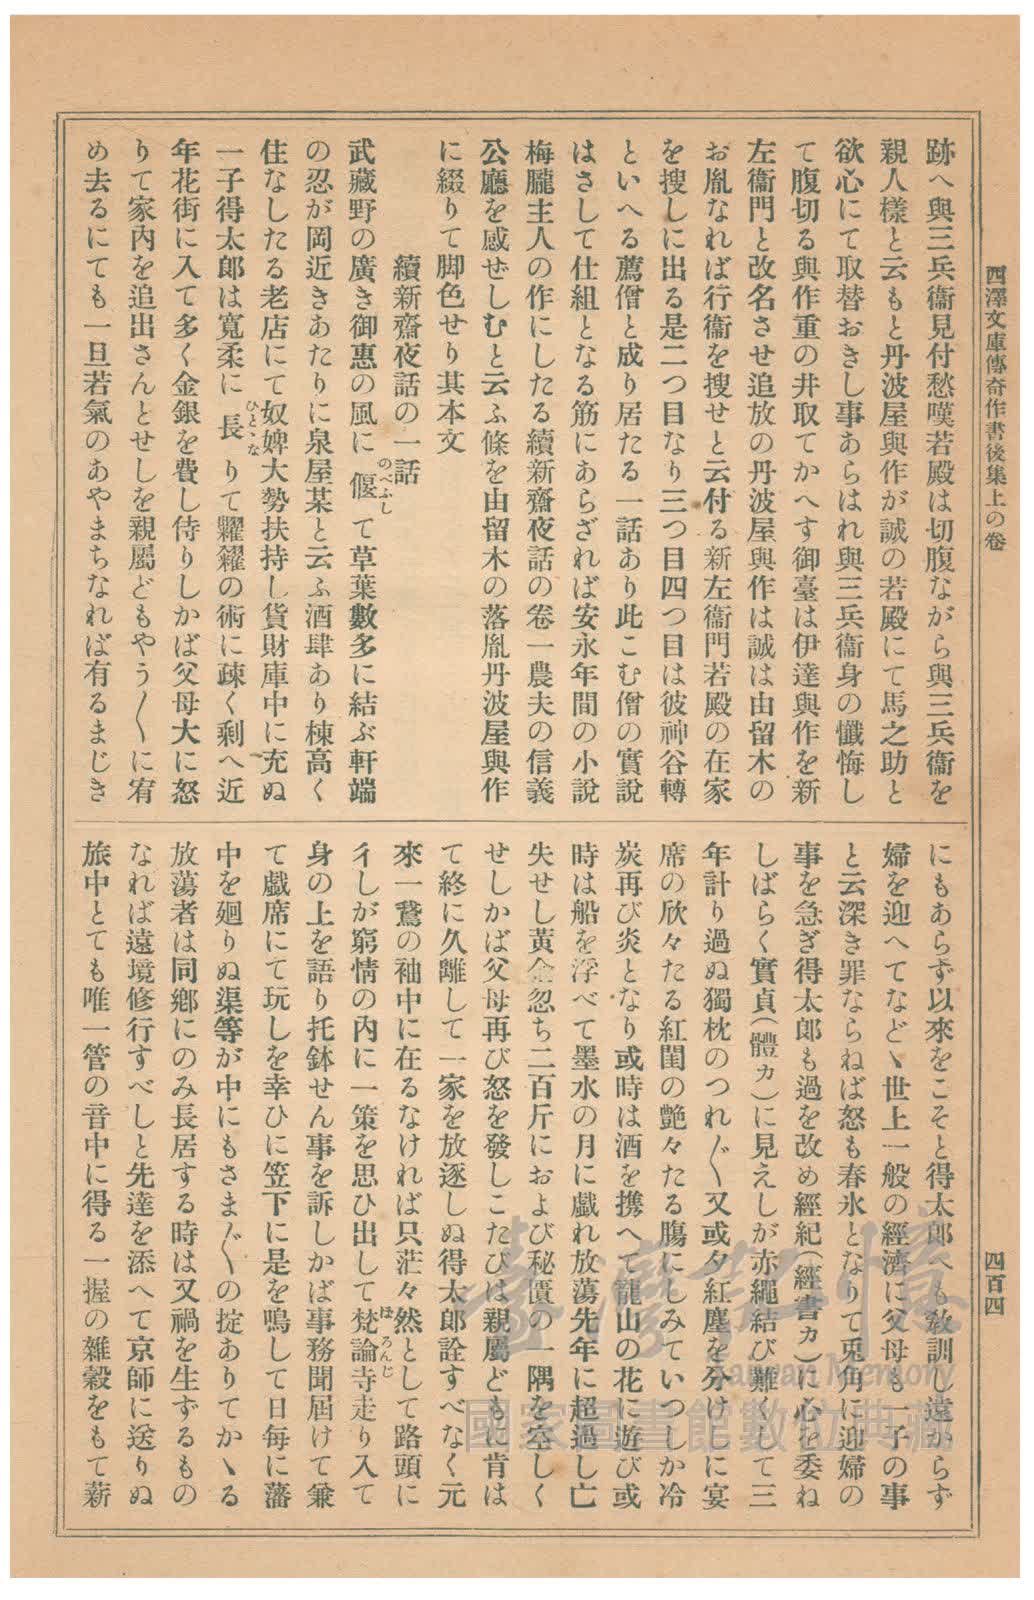 西澤文庫傳奇作書後集上の卷
四百四
跡へ與三兵衞見付愁嘆若殿は切腹ながら與三兵衞を
親人樣と云もと丹波屋與作が誠の若殿にて馬之助と
欲心にて取替おきし事あらはれ與三兵衞身の懺悔し
て腹切る與作重の井取てかへす御臺は伊達與作を新
左衞門と改名させ追放の丹波屋與作は誠は由留木の
お胤なれば行衞を搜せと云付る新左衞門若殿の在家
を搜しに出る是二つ目なり三つ目四つ目は彼神谷轉
といへる薦僧と成り居たる一話あり此こむ僧の實說
はさして仕組となる筋にあらざれば安永年間の小說
梅朧主人の作にしたる續新齋夜話の卷一農夫の信義
公廳を感ぜしむと云ふ條を由留木の落胤丹波屋與作
に綴りて脚色せり其本文
續新齋夜話の一話
武藏野の廣き御惠の風に偃のべふして草葉數多に結ぶ軒端
の忍が岡近きあたりに泉屋某と云ふ酒肆あり棟高く
住なしたる老店にて奴婢大勢扶持し貨財庫中に充ぬ
一子得太郎は寬柔に長ひとゝなりて糶糴の術に疎く剩へ近
年花街に入て多く金銀を費し侍りしかば父母大に怒
りて家內を追出さんとせしを親屬どもやう〱に宥
め去るにても一旦若氣のあやまちなれば有るまじき
にもあらず以來をこそと得太郎へも敎訓し遠からず
婦を迎へてなどゝ世上一般の經濟に父母も一子の事
と云深き罪ならねば怒も春氷となりて兎角に迎婦の
事を急ぎ得太郎も過を改め經紀(經書カ)に心を委ね
しばらく實貞(體カ)に見えしが赤繩結び難くして三
年計り過ぬ獨枕のつれ〲又或夕紅塵を分けしに宴
席の欣々たる紅閨の艶々たる腸にしみていつしか冷
炭再び炎となり或時は酒を携へて寵山の花に遊び或
時は船を浮べて墨水の月に戲れ放蕩先年に超過し亡
失せし黃金忽ち二百斤におよび秘匱の一隅を空しく
せしかば父母再び怒を發しこたびは親屬どもに肯は
て終に久離して一家を放逐しぬ得太郎詮すべなく元
來一鵞の袖中に在るなければ只茫々然として路頭に
彳しが窮情の內に一策を思ひ出して梵論寺ぼろんじ走り入て
身の上を語り托鉢せん事を訴しかば事務聞屆けて兼
て戲席にて玩しを幸ひに笠下に是を鳴して日每に藩
中を廻りぬ渠等が中にもさま〲の掟ありてかゝる
放蕩者は同鄕にのみ長居する時は又禍を生ずるもの
なれば遠境修行すべしと先達を添へて京師に送りぬ
旅中とても唯一管の音中に得る一握の雜穀をもて薪
臺灣記憶
Taiwan Memory
國家圖書館數位典藏